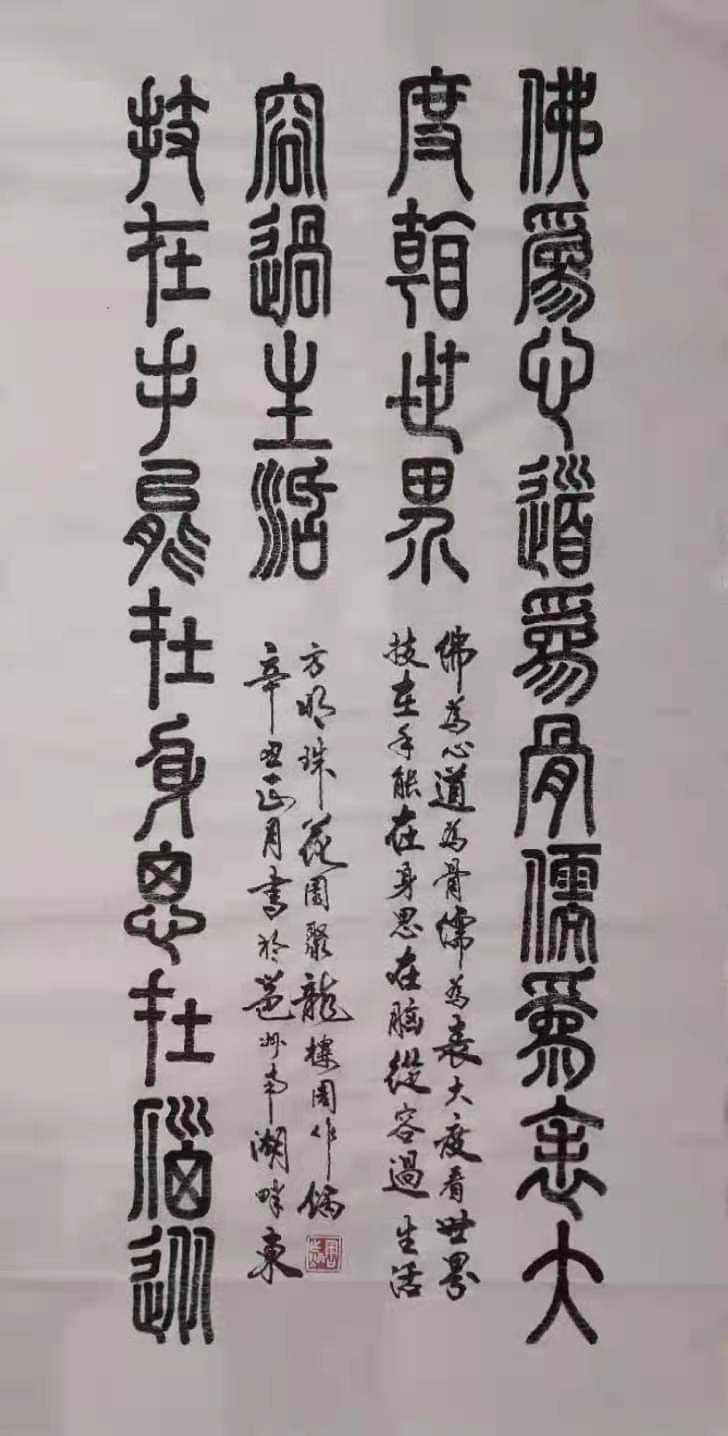 佛為心道為骨儒為表大
度看世界
技在手能在身思在腦從
容過生活
佛為心道為骨儒為表大度看世界
技在手能在身思在脑從容過生活
辛丑正月書於邕州南湖畔東
方明珠花園聚龍樓周作